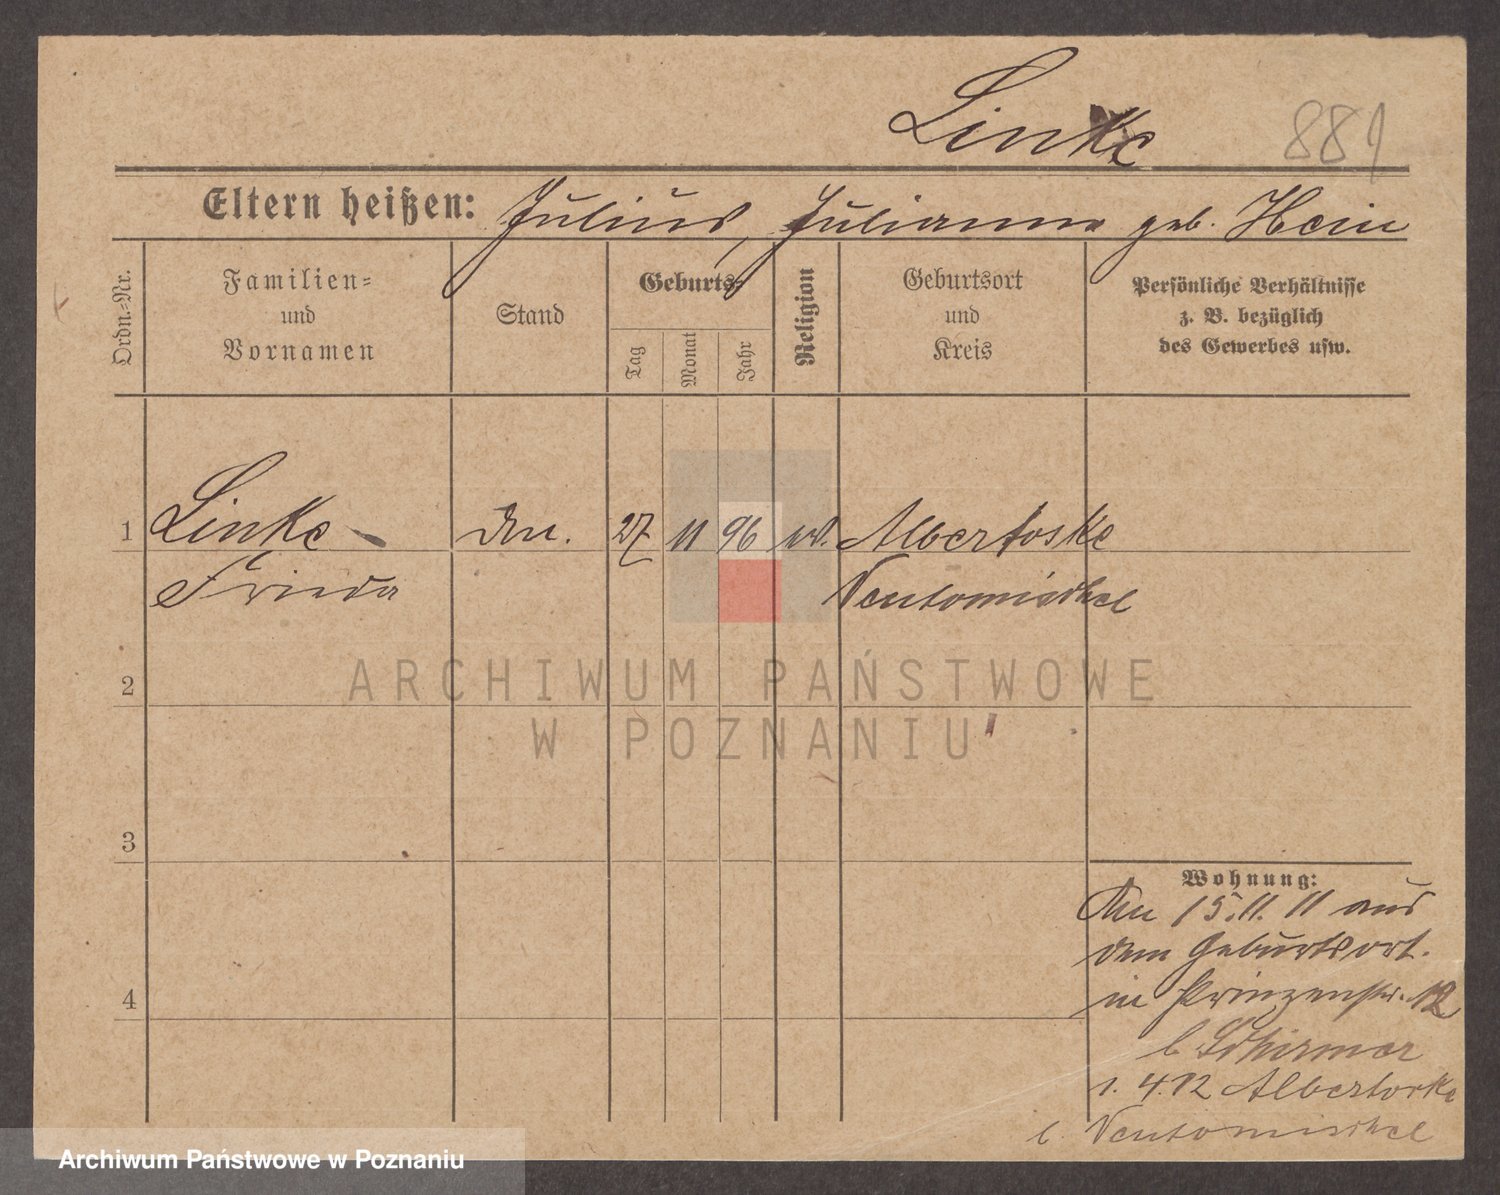 Linke 881
Eltern heißen: Julius, Julianna geb. Hein
Ordn.-Nr.
Familien-
und
Vornamen
Stand
Geburts-
Tag
Monat
Jahr
Religion
Geburtsort
und
Kreis
Persönliche Verhältnisse
z. B. bezüglich
des Gewerbes usw.
1 Linke 27 11 96 Albertoske
Frieda Neutomischel
2
ARCHIWUM PAŃSTWOWE
W POZNANIU
3
Wohnung:
15.11.11 aus
dem Geburtsort.
in Prinzenstr. 12
b Schirmer
1.4.12 Albertoske
b. Neutomischel
4
Archiwum Państwowe w Poznaniu